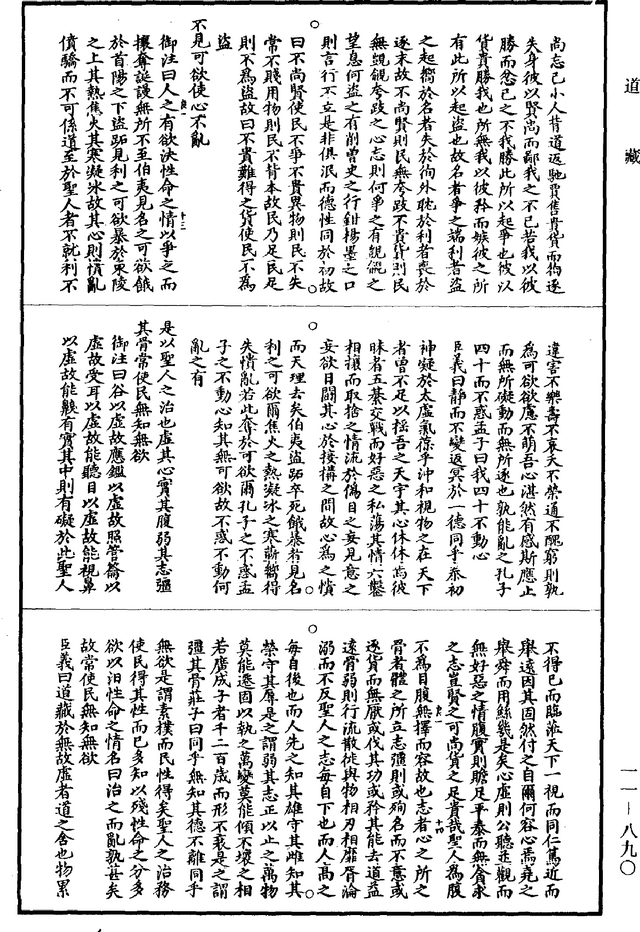 道藏
尚忘己小人背道返馳賈售貴貨而徇逐
失身彼以賢為而鄙我之不已若我以彼
勝而忿己之不我勝此所以起爭也彼以
貨貴勝我也所無我以彼矜而嫉彼之所
有此所以起盜也故名者爭之端利者盜
之起嚮於名者失於徇外耽於利者喪於
逐末故不尚賢則民無夸跂不貴貨則民
無覬覦夸跂之心志則何爭之有覬覦之
望息何盜之有削曾史之行鉗楊墨之口
則言行不立是非俱泯而德性同於初故
曰不尚賢使民不爭不貴異物則民不失
常不賤用物則民不背本故民乃足民足
則不為盜故曰不貴難得之貨使民不為
盜
不見可欲使心不亂
御注曰人之有欲決性命之情以爭之而
攘奪誕謾無所不至伯夷見名之可欲餓
於首陽之下盜跖見利之可欲暴於東陵
之上其熱焦火其寒凝冰故其心則憒亂
僨驕而不可係道至於聖人者不就利不
違害不樂壽不哀夭不榮通不醜窮則孰
為可欲欲慮不萌吾心湛然有感斯應止
而無所礙動而無所逐也孰能亂之孔子
四十而不惑孟子曰我四十不動心
臣義曰靜而不變返冥於一德同乎泰初
神凝於太虛氣葆乎沖和視物之在天下
者曾不足以搖吾之天宇其心休休焉彼
昧者五藥交戰而好惡之私蕩其情六鑿
相攘而取捨之情流於偽目之妄見意之
妄欲日鬪其心於接構之間故心為之憒
而天理去矣伯夷盜跖卒死餓暴者見名
利之可欲爾焦火之熱凝冰之寒蘄嚮得
失憒亂若此奪於可欲爾孔子之不惑孟
子之不動心知其無可欲故不惑不動何
亂之有
是以聖人之治也虛其心實其腹弱其志彊
其骨常使民無知無欲
御注曰谷以虛故應鑑以虛故照管籥以
虛故受耳以虛故能聽目以虛故能視鼻
以虛故能齅有實其中則有礙於此聖人
不得已而臨蒞天下一視而同仁篤近而
舉遠因其固然付之自爾何容心焉堯之
舉舜而用鯀幾是矣心虛則公聽並觀而
無好惡之情腹實則贍足平泰而無貪求
之志豈賢之可尚貨之足貴哉聖人為腹
不為目腹無擇而容故也志者心之所之
骨者體之所立志彊則或殉名而不息或
逐貨而無厭或伐其功或矜其能去道益
遠骨弱則行流散徙與物相刃相靡胥淪
溺而不反聖人之志每自下也而人高之
每自後也而人先之知其雄守其雌知其
榮守其辱是之謂弱其志正以止之萬物
莫能遷固以執之萬變莫能傾不壞之相
若廣成子者千二百歲而形不衰是之謂
彊其骨莊子曰同乎無知其德不離同乎
無欲是謂素樸而民性得矣聖人之治務
使民得其性而已多知以殘性命之分多
欲以汨性命之情名曰治之而亂孰甚矣
故常使民無知無欲
臣義曰道藏於無故虛者道之舍也物累
一一—八九〇